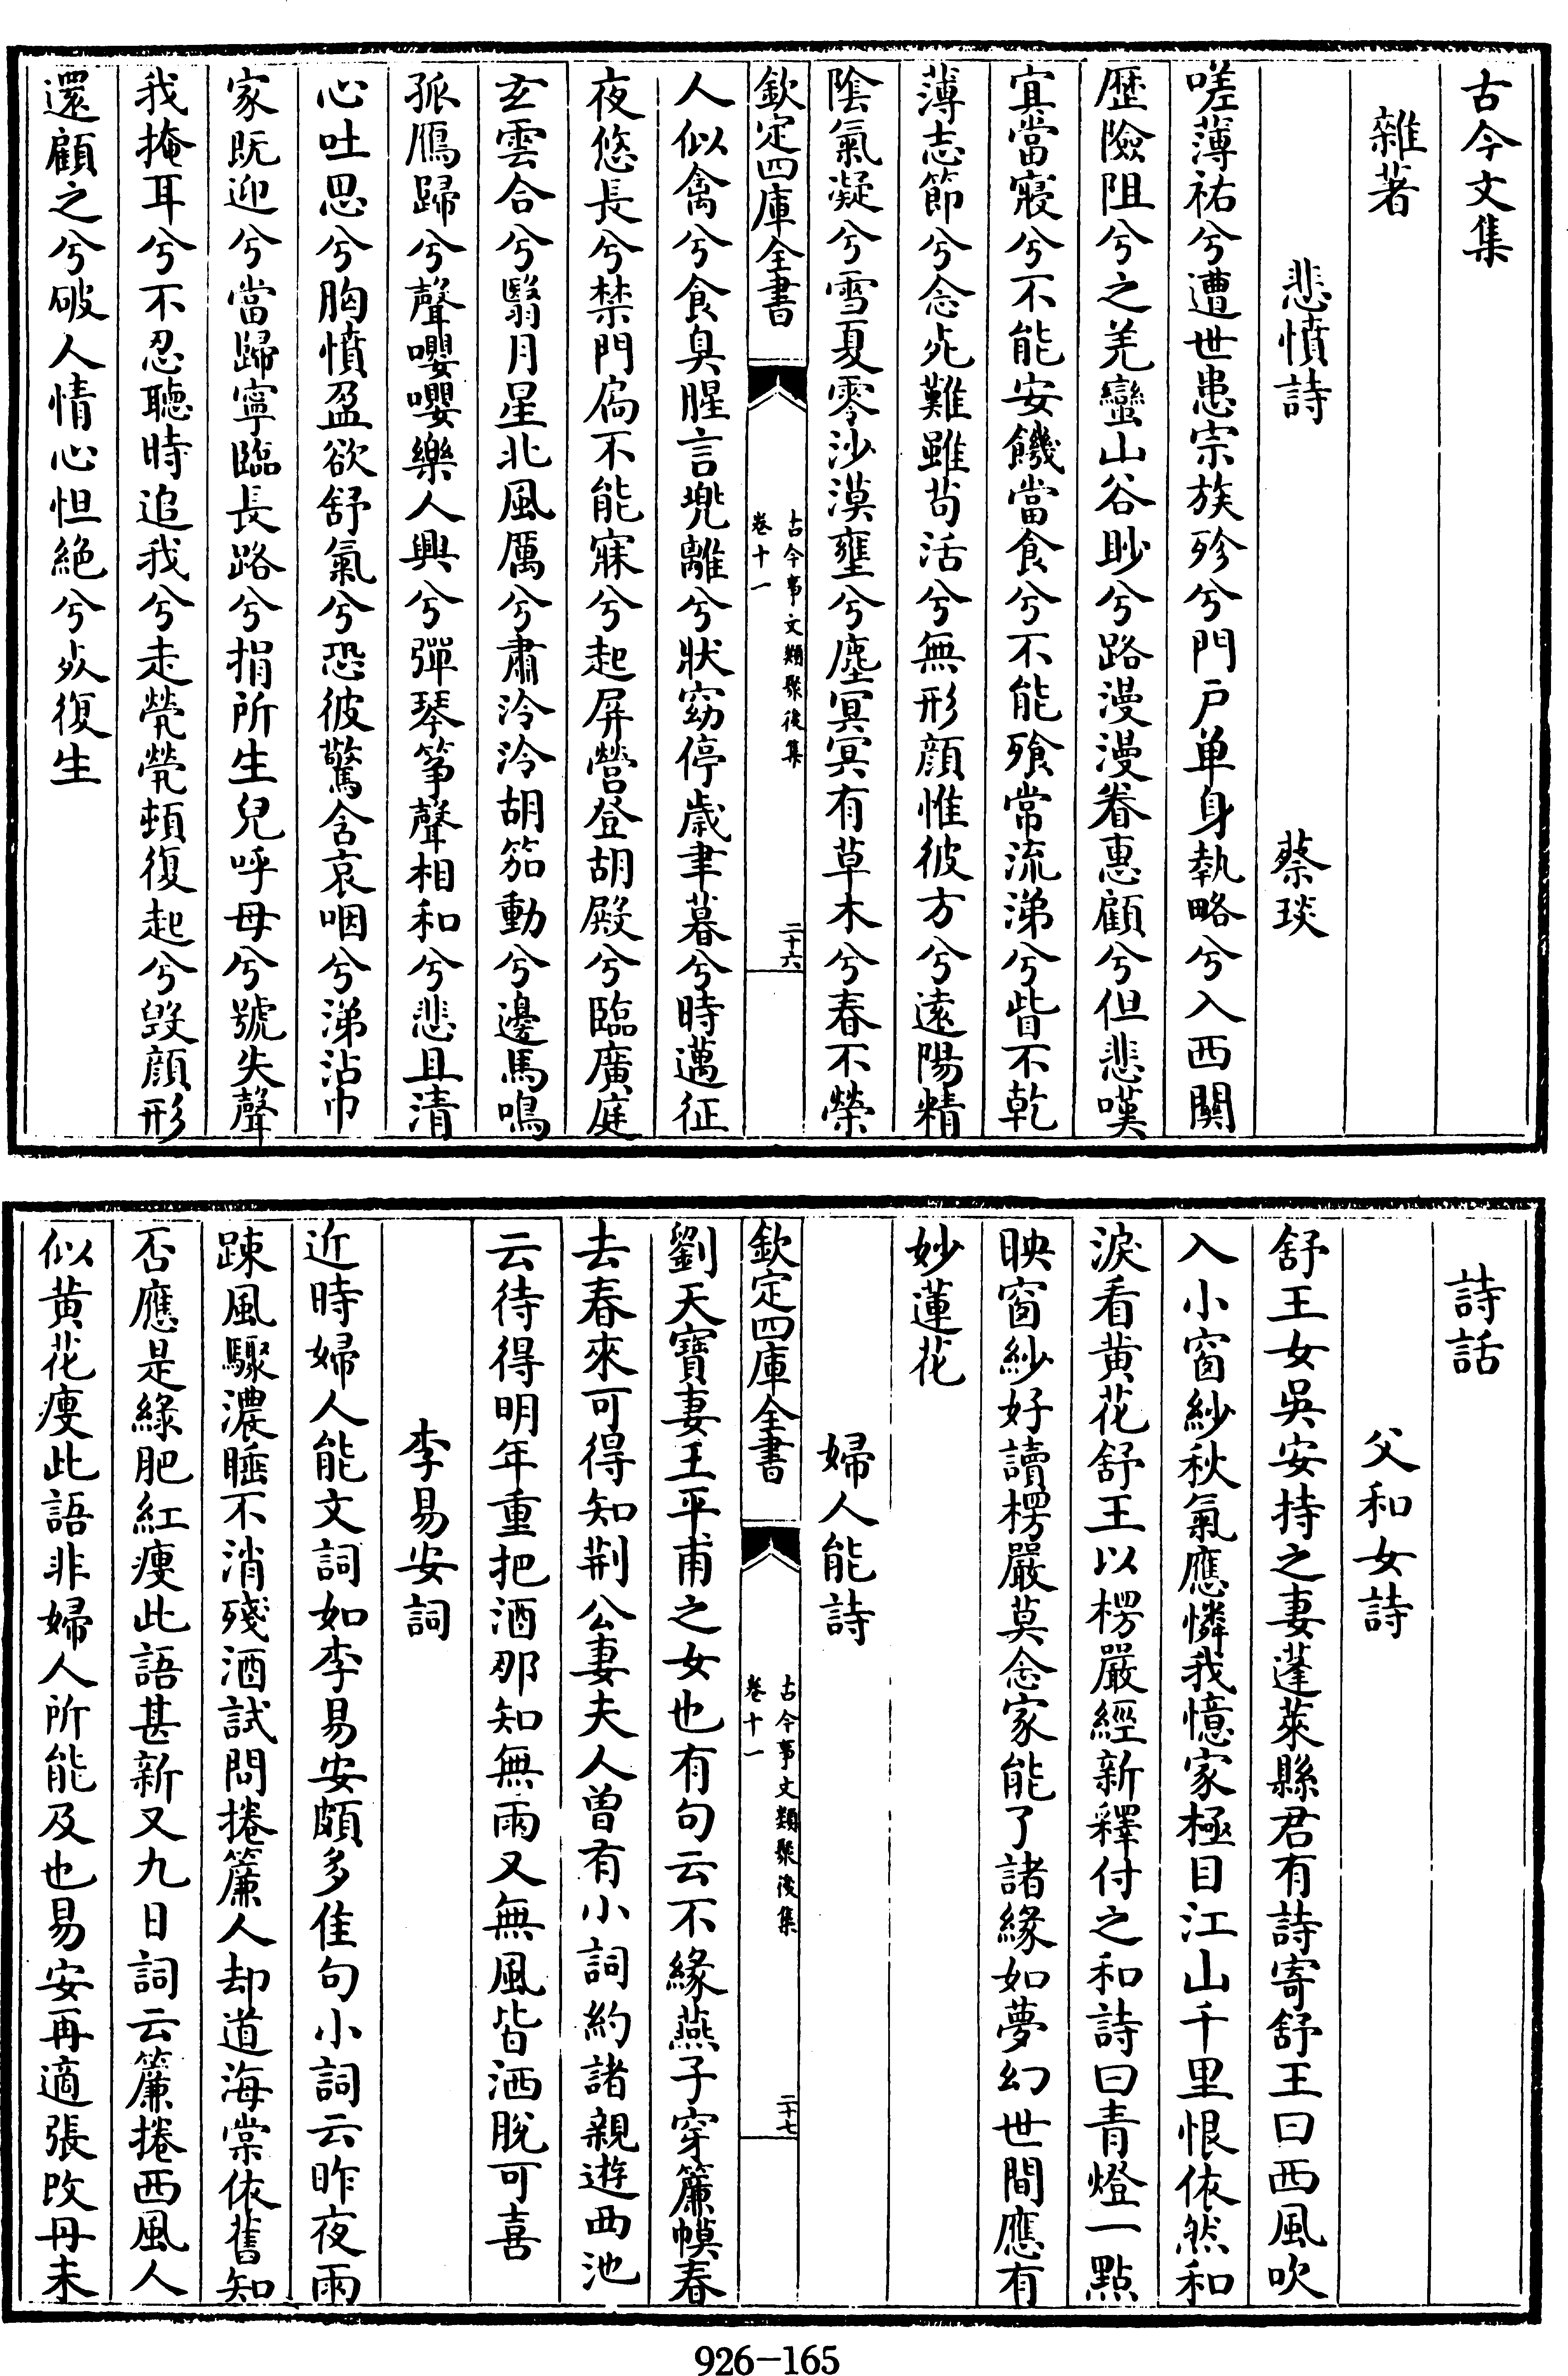 古今文集
雜著
悲憤詩　蔡琰
嗟薄祐兮遭世患宗族殄兮門戸单身執略兮入西關
歴險阻兮之羌蠻山谷眇兮路漫漫眷惠顧兮但悲嘆
宜當寢兮不能安饑當食兮不能飱常流涕兮眥不乾
薄志節兮念死難雖苟活兮無形顔惟彼方兮逺陽精
隂氣凝兮雪夏零沙漠壅兮塵冥冥有草木兮春不榮
欽定四庫全書　古今事文類聚後集　卷十一　二十六
人似禽兮食臭腥言兠離兮狀窈停歲聿暮兮時邁征
夜悠長兮禁門扄不能寐兮起屏營登胡殿兮臨廣庭
玄雲合兮翳月星北風厲兮肅泠泠胡笳動兮邊馬鳴
孤鴈歸兮聲嚶嚶樂人興兮彈琴筝聲相和兮悲且清
心吐思兮胸憤盈欲舒氣兮恐彼驚含哀咽兮涕沾巾
家既迎兮當歸寧臨長路兮捐所生兒呼母兮號失聲
我掩耳兮不忍聽時追我兮走煢煢頓復起兮毁顔形
還顧之兮破人情心怛絶兮死復生
詩話
父和女詩
舒王女吳安持之妻蓬萊縣君有詩寄舒王曰西風吹
入小窗紗秋氣應憐我憶家極目江山千里恨依然和
淚看黄花舒王以楞嚴經新釋付之和詩曰青燈一點
映窗紗好讀楞嚴莫念家能了諸緣如夢幻世間應有
妙蓮花
婦人能詩
欽定四庫全書　古今事文類聚後集　卷十一　二十七
劉天寶妻王平甫之女也有句云不緣燕子穿簾幙春
去春來可得知荆公妻夫人曽有小詞約諸親遊西池
云待得明年重把酒那知無雨又無風皆洒脫可喜
李易安詞
近時婦人能文詞如李易安頗多佳句小詞云昨夜雨
踈風驟濃睡不消殘酒試問捲簾人却道海棠依舊知
否應是綠肥紅瘦此語甚新又九日詞云簾捲西風人
似黄花瘦此語非婦人所能及也易安再適張攺丹未
926-165